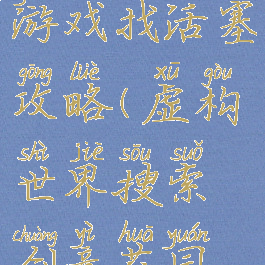 游戏找活塞
gōng lüè xū gòu
攻略(虚构
shì jiè sōu suǒ
世界搜索
chuàng yì huā yuán
创意花园